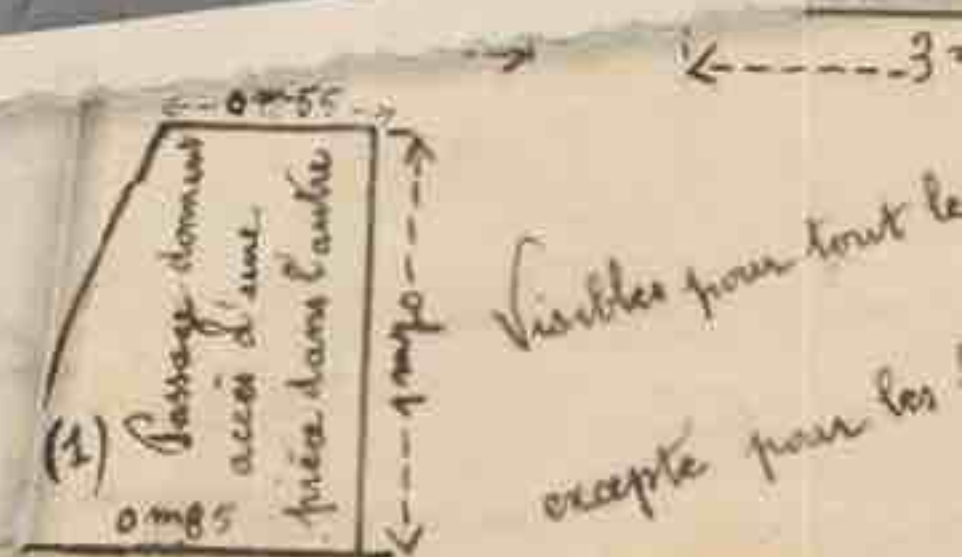 0m55
3m
Passage donnant
accès d'une
pièce dans l'autre
(1)
0m85
Visibles pour tout le
excepté pour les